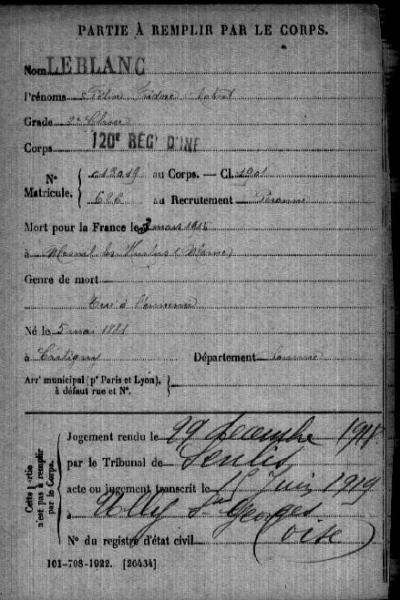 PARTIE À REMPLIR PAR LE CORPS.
Nom LEBLANC
Prénoms Isidore
Grade 2e Classe
Corps 120e REGt D'INF
N° Matricule. 012019 au Corps. — Cl. 1901
622 au Recrutement Péronne
Mort pour la France le 3 mars 1915
à Mesnil les Hurlus (Marne)
Genre de mort
Tué à l'ennemi
Né le 5 mai 1881
à Cartigny Département Somme
Arrt municipal (pr Paris et Lyon),
à défaut rue et N°.
Cette partie n'est pas à remplir par le Corps.
Jugement rendu le 29 décembre
par le Tribunal de Senlis
acte ou jugement transcrit le 15 Juin 1919
à Ully St Georges
N° du registre d'état civil (Oise
101-708-1922. [26434]